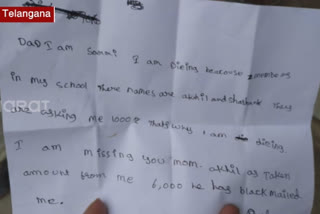 Telangana
DaD I am Saami I am Dieing because 2 members
in my school there names are akhil and shashank they
are asking me 1000₹ that's why I am dieing
I am missing you mom. akhil as taken
amount from me 6,000 he has blackmailed
me.